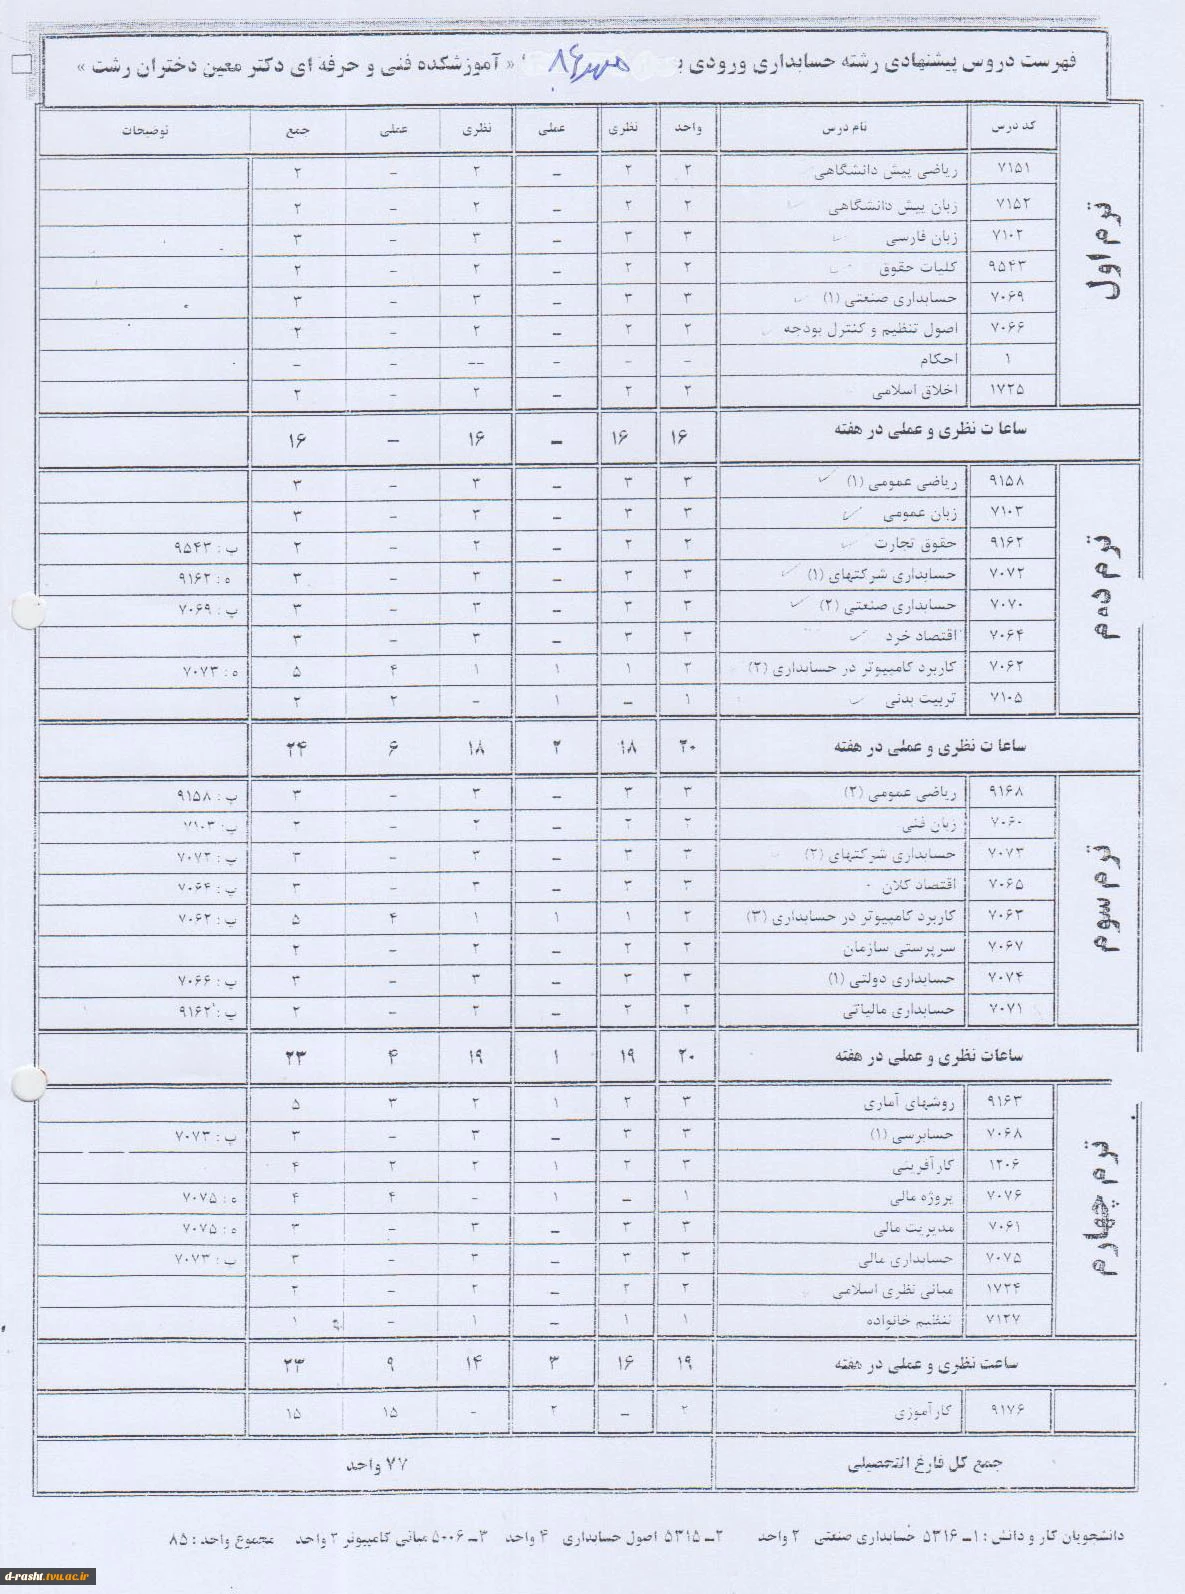 فهرست دروس پیشنهادی رشته حسابداری ورودی مهر ۸۶ « آموزشکده فنی و حرفه ای دکتر معین دختران رشت »
کد درس نام درس واحد نظری عملی نظری عملی جمع توضیحات
ترم اول
۷۱۵۱ ریاضی پیش دانشگاهی ۲ ۲ – ۲ – ۲
۷۱۵۲ زبان پیش دانشگاهی ۲ ۲ – ۲ – ۲
۷۱۰۲ زبان فارسی ۳ ۳ – ۳ – ۳
۹۵۴۳ کلیات حقوق ۲ ۲ – ۲ – ۲
۷۰۶۹ حسابداری صنعتی (۱) ۳ ۳ – ۳ – ۳
۷۰۶۶ اصول تنظیم و کنترل بودجه ۲ ۲ – ۲ – ۲
۱ احکام – – – -- – –
۱۷۲۵ اخلاق اسلامی ۲ ۲ – ۲ – ۲
ساعات نظری و عملی در هفته ۱۶ ۱۶ – ۱۶ – ۱۶
ترم دوم
۹۱۵۸ ریاضی عمومی (۱) ۳ ۳ – ۳ – ۳
۷۱۰۳ زبان عمومی ۳ ۳ – ۳ – ۳
۹۱۶۲ حقوق تجارت ۲ ۲ – ۲ – ۲ پ : ۹۵۴۳
۷۰۷۲ حسابداری شرکتهای (۱) ۳ ۳ – ۳ – ۳ ه : ۹۱۶۲
۷۰۷۰ حسابداری صنعتی (۲) ۳ ۳ – ۳ – ۳ پ : ۷۰۶۹
۷۰۶۴ اقتصاد خرد ۳ ۳ – ۳ – ۳
۷۰۶۲ کاربرد کامپیوتر در حسابداری (۲) ۲ ۱ ۱ ۱ ۴ ۵ ه : ۷۰۷۳
۷۱۰۵ تربیت بدنی ۱ – ۱ – ۲ ۲
ساعات نظری و عملی در هفته ۲۰ ۱۸ ۲ ۱۸ ۶ ۲۴
ترم سوم
۹۱۶۸ ریاضی عمومی (۲) ۳ ۳ – ۳ – ۳ پ : ۹۱۵۸
۷۰۶۰ زبان فنی ۲ ۲ – ۲ – ۲ پ : ۷۱۰۳
۷۰۷۳ حسابداری شرکتهای (۲) ۳ ۳ – ۳ – ۳ پ : ۷۰۷۲
۷۰۶۵ اقتصاد کلان ۳ ۳ – ۳ – ۳ پ : ۷۰۶۴
۷۰۶۳ کاربرد کامپیوتر در حسابداری (۳) ۲ ۱ ۱ ۱ ۴ ۵ پ : ۷۰۶۲
۷۰۶۷ سرپرستی سازمان ۲ ۲ – ۲ – ۲
۷۰۷۴ حسابداری دولتی (۱) ۳ ۳ – ۳ – ۳ پ : ۷۰۶۶
۷۰۷۱ حسابداری مالیاتی ۲ ۲ – ۲ – ۲ پ : ۹۱۶۲
ساعات نظری و عملی در هفته ۲۰ ۱۹ ۱ ۱۹ ۴ ۲۳
ترم چهارم
۹۱۶۳ روشهای آماری ۳ ۲ ۱ ۲ ۳ ۵
۷۰۶۸ حسابرسی (۱) ۳ ۳ – ۳ – ۳ پ : ۷۰۷۳
۱۲۰۶ کارآفرینی ۳ ۲ ۱ ۲ ۲ ۴
۷۰۷۶ پروژه مالی ۱ – ۱ – ۴ ۴ ه : ۷۰۷۵
۷۰۶۱ مدیریت مالی ۳ ۳ – ۳ – ۳ ه : ۷۰۷۵
۷۰۷۵ حسابداری مالی ۳ ۳ – ۳ – ۳ پ : ۷۰۷۳
۱۷۲۴ مبانی نظری اسلامی ۲ ۲ – ۲ – ۲
۷۱۲۷ تنظیم خانواده ۱ ۱ – ۱ – ۱
ساعت نظری و عملی در هفته ۱۹ ۱۶ ۳ ۱۴ ۹ ۲۳
۹۱۷۶ کارآموزی ۲ – ۲ – ۱۵ ۱۵
جمع کل فارغ التحصیلی ۷۷ واحد
دانشجویان کار و دانش : ۱ــ ۵۳۱۶ حسابداری صنعتی ۲ واحد ۲ــ ۵۳۱۵ اصول حسابداری ۴ واحد ۳ــ ۵۰۰۶ مبانی کامپیوتر ۲ واحد مجموع واحد : ۸۵
d-rasht.tvu.ac.ir